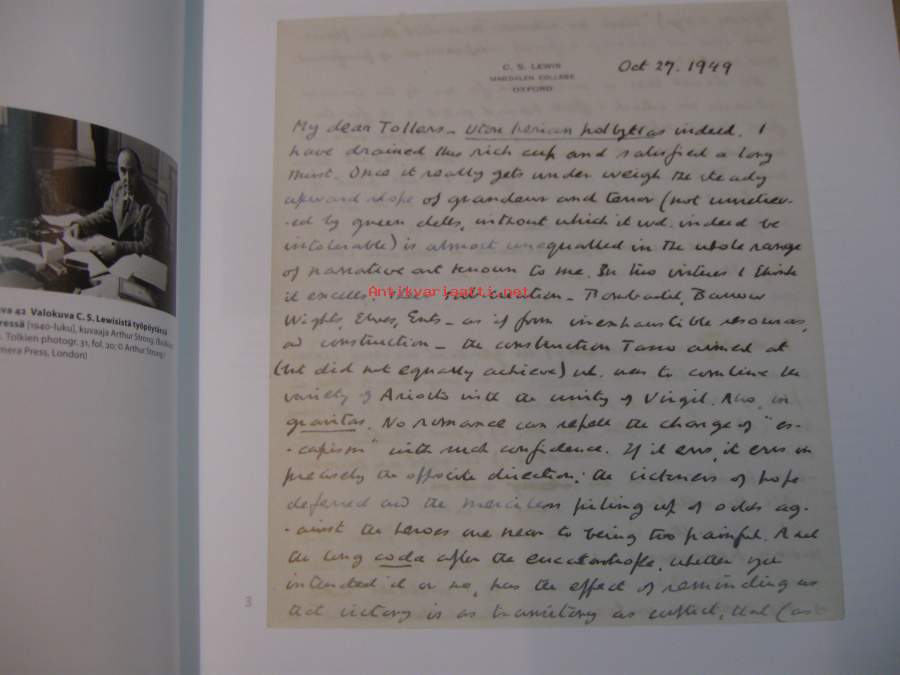 42 Valokuva C. S. Lewisistä työpöytänsä
(1940-luku), kuvaaja Arthur Strong.
Tolkien photogr. 31, fol. 20; © Arthur Strong /
Press, London)
C. S. LEWIS
MAGDALEN COLLEGE
OXFORD
Oct 27. 1949
My dear Tollers – Uton herian holbytlas indeed. I
have drained the rich cup and satisfied a long
thirst. Once it really gets under weigh the steady
upward slope of grandeur and terror (not unreliev-
-ed by green dells, without which it wd. indeed be
intolerable) is almost unequalled in the whole range
of narrative art known to me. In two virtues I think
it excells: sub-creation – Bombadil, Barrow
Antikvariaatti.net
Wights, Elves, Ents – as if from inexhaustible resources,
and construction – the construction Tasso aimed at
(but did not equally achieve) wh. was to combine the
variety of Ariosto with the unity of Virgil. Also, in
gravitas. No romance can repell the charge of "es-
-capism" with such confidence. If it errs, it errs in
precisely the opposite direction: the sickness of hope
deferred and the merciless piling up of odds ag-
-ainst the heroes are near to being too painful. And
the long coda after the eucatastrophe, whether you
intended it or no, has the effect of reminding us
that victory is as transitory as conflict, that (as
3